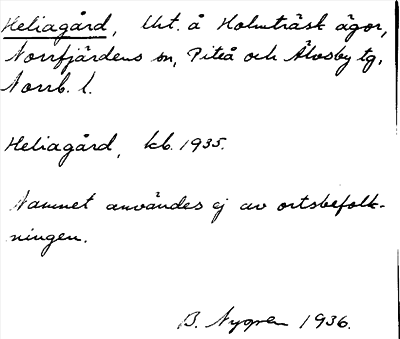 Heliagård, Utt. å Holmträsk ägor,
Norrfjärdens sn, Piteå och Älvsby tg,
Norrb. l.
Heliagård, kb. 1935.
Namnet användes ej av ortsbefolk-
ningen.
B. Nygren 1936.